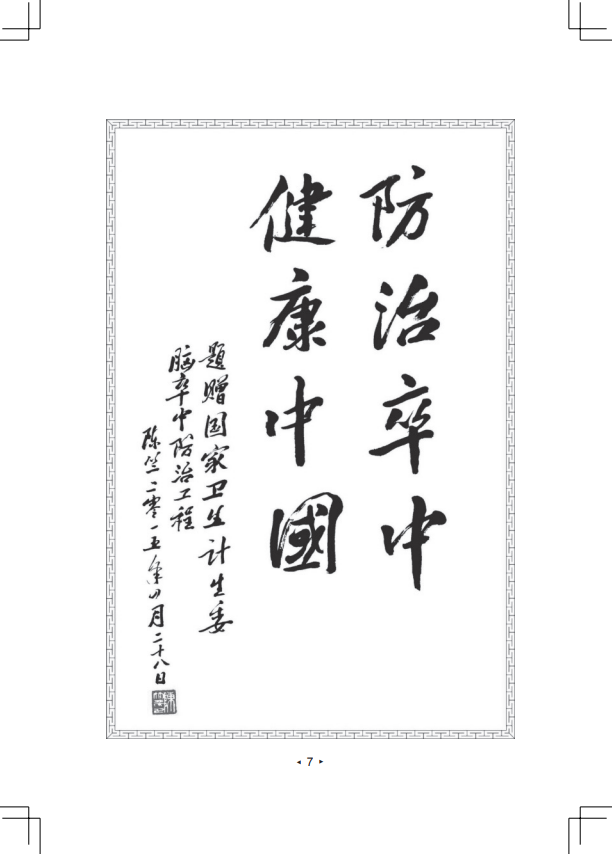 防治卒中
健康中國
题赠国家卫生计生委
脑卒中防治工程
陈竺二零一五年四月二十八日
7